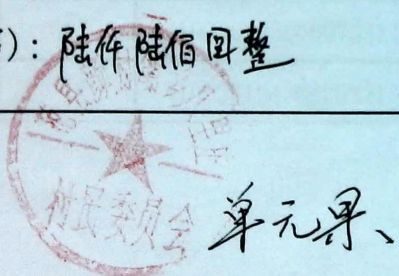 ): 陆仟陆佰圆整
村民委员会
单元果、